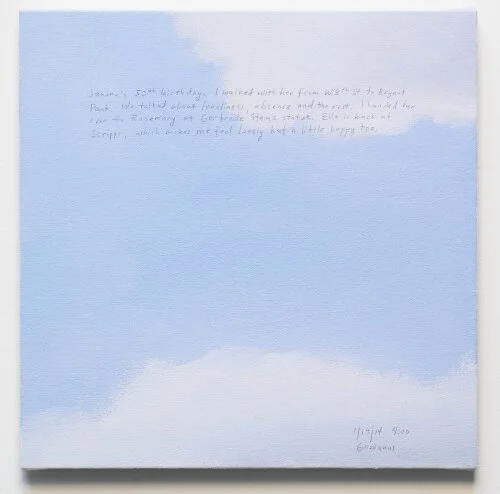 Janine's 50th birthday. I walked with her from W 8th St to Bryant
Park. We talked about loneliness, absence and the rest. I handed her
over to Rosemary at Gertrude Stein's statue. Ella is back at
Scripps, which makes me feel lonely but a little happy too.
1/19/14 4:00